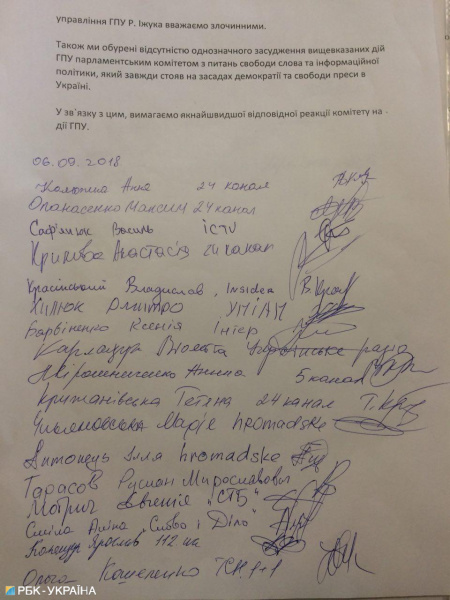 управління ГПУ Р. Їжука вважаємо злочинними.
Також ми обурені відсутністю однозначного засудження вищевказаних дій
ГПУ парламентським комітетом з питань свободи слова та інформаційної
політики, який завжди стояв на засадах демократії та свободи преси в
Україні.
У зв`язку з цим, вимагаємо якнайшвидшої відповідної реакції комітету на
дії ГПУ.
06.09.2018
Анна 24 канал
Опанасенко Максим 24 канал
Василь ICTV
Анастасія 24 канал
Красінський Владислав, Insider В.Крас
Хилюк Дмитро УНІАН
Барвіненко Ксенія Інтер
Карлащук Віолета Українське радіо
Мірошниченко 5 канал
Крижанівська Тетяна 24 канал
Марія hromadske
Антонець Ілля hromadske
Тарасов Руслан Мирославович
Мотрич Євгенія "СТБ"
Сміла Аліна "Слово і Діло"
Ярослав 112 ua
Ольга Кошеленко ТСН, 1+1
РБК - УКРАЇНА